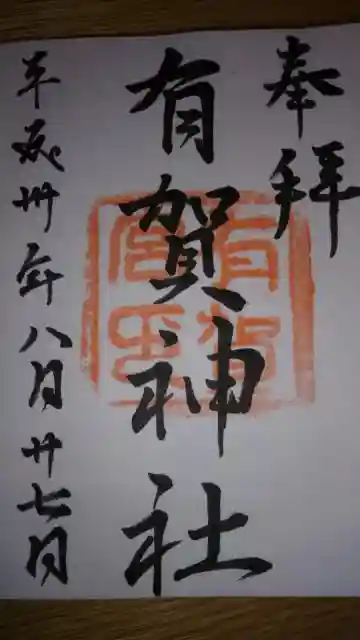 奉拝
有賀神社
有賀宮印
平成卅年八月廿七日